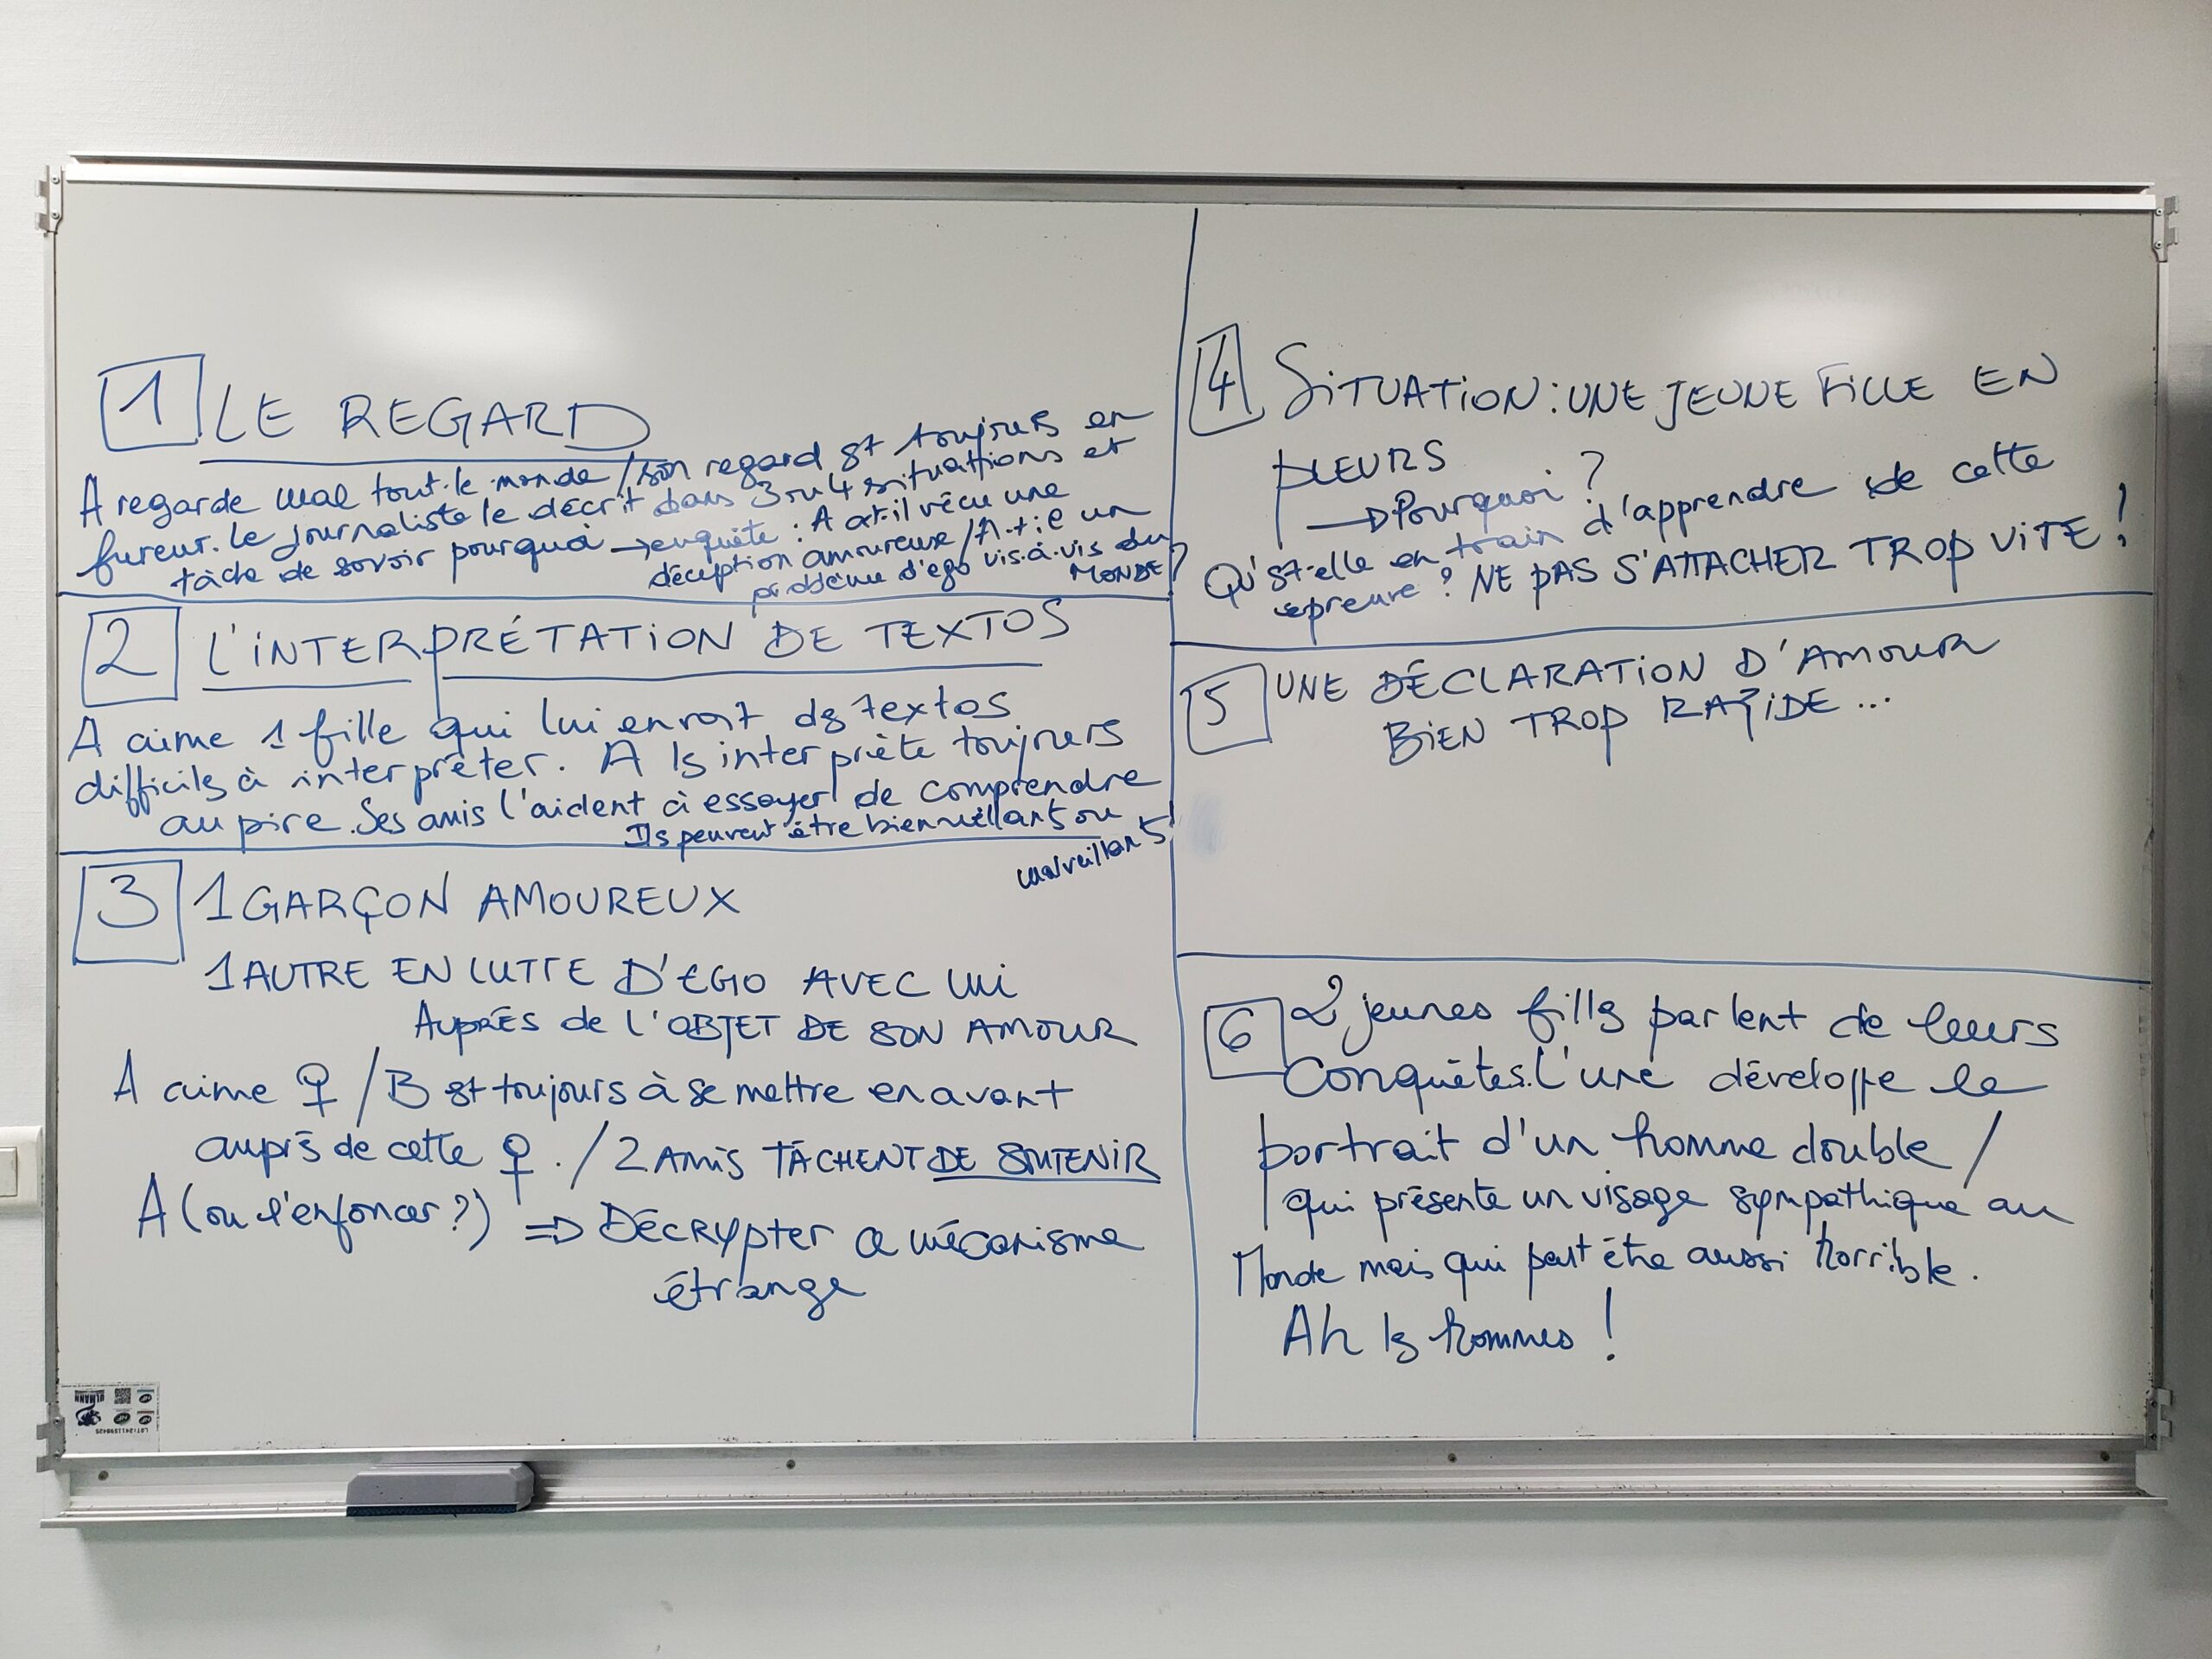 1 LE REGARD
A regarde mal tout le monde / son regard est toujours en
fureur. le journaliste le décrit dans 3 ou 4 situattions et
tâche de savoir pourquoi → enquête : A at-il vécu une
déception amoureuse / A-t-il un
problème d'ego vis-à-vis du
MONDE ?
2 L'INTERPRÉTATION DE TEXTOS
A aime 1 fille qui lui envoit des textos
difficiles à interpréter. A les interprète toujours
au pire. Ses amis l'aident à essayer de comprendre
Ils peuvent être bienveillants ou
malveillants
3 1 GARÇON AMOUREUX
1 AUTRE EN LUTTE D'EGO AVEC LUI
AUPRÈS de L'OBJET DE SON AMOUR
A aime ♀ / B est toujours à se mettre en avant
auprès de cette ♀. / 2 AMIS TÂCHENT DE SOUTENIR
A (ou l'enfoncer ?) => DÉCRYPTER ce mécanisme
étrange
4 SITUATION : UNE JEUNE FILLE EN
PLEURS
→ Pourquoi ?
Qu'est-elle en train d'apprendre de cette
épreuve ? NE PAS S'ATTACHER TROP VITE !
5 UNE DÉCLARATION D'AMOUR
BIEN TROP RAPIDE ...
6 2 jeunes filles parlent de leurs
Conquêtes. L'une développe le
portrait d'un homme double /
qui présente un visage sympathique au
Monde mais qui peut être aussi horrible.
Ah les hommes !
ULMANN